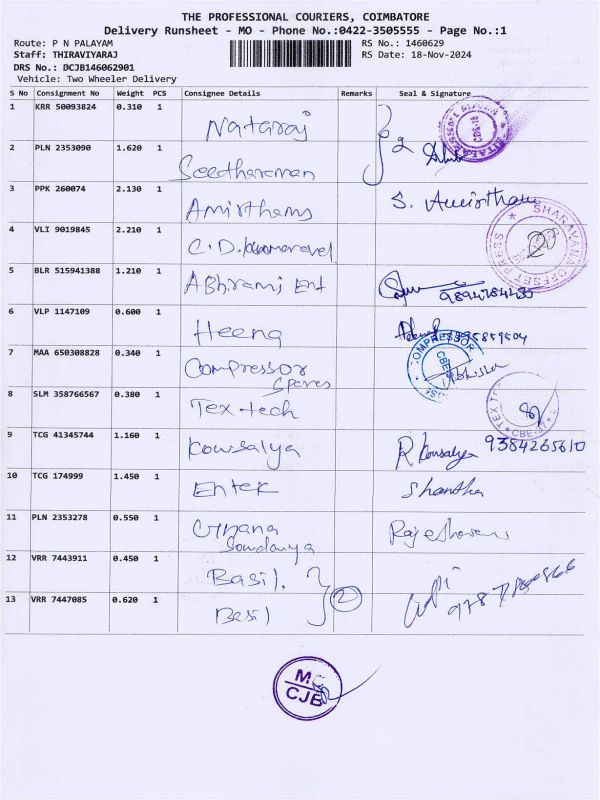 THE PROFESSIONAL COURIERS, COIMBATORE
Delivery Runsheet - MO - Phone No.:0422-3505555 - Page No.:1
Route: P N PALAYAM RS No.: 1460629
Staff: THIRAVIYARAJ RS Date: 18-Nov-2024
DRS No.: DCJB146062901
Vehicle: Two Wheeler Delivery
S No Consignment No Weight PCS Consignee Details Remarks Seal & Signature
1 KRR 50093824 0.310 1 Nataraj
2 PLN 2353090 1.620 1 Seetharaman
3 PPK 260074 2.130 1 Amirthams S. Amirtham
4 VLI 9019845 2.210 1 C.D. Kumaravel
SHARAVANA OFFSET PRESS
5 BLR 515941388 1.210 1 Abhirami Ent
6 VLP 1147109 0.600 1 Heena
7 MAA 650308828 0.340 1 Compressor
Spares
COMPRESSOR
CBE
8 SLM 358766567 0.380 1 Tex-tech
TEX TO
CBE
9 TCG 41345744 1.160 1 Kowsalya R Kowsalya 9384265610
10 TCG 174999 1.450 1 Entek Shantha
11 PLN 2353278 0.550 1 Gnana
Soundarya
Rajeshwari
12 VRR 7443911 0.450 1 Basil
13 VRR 7447085 0.620 1 Basil 2
CJB